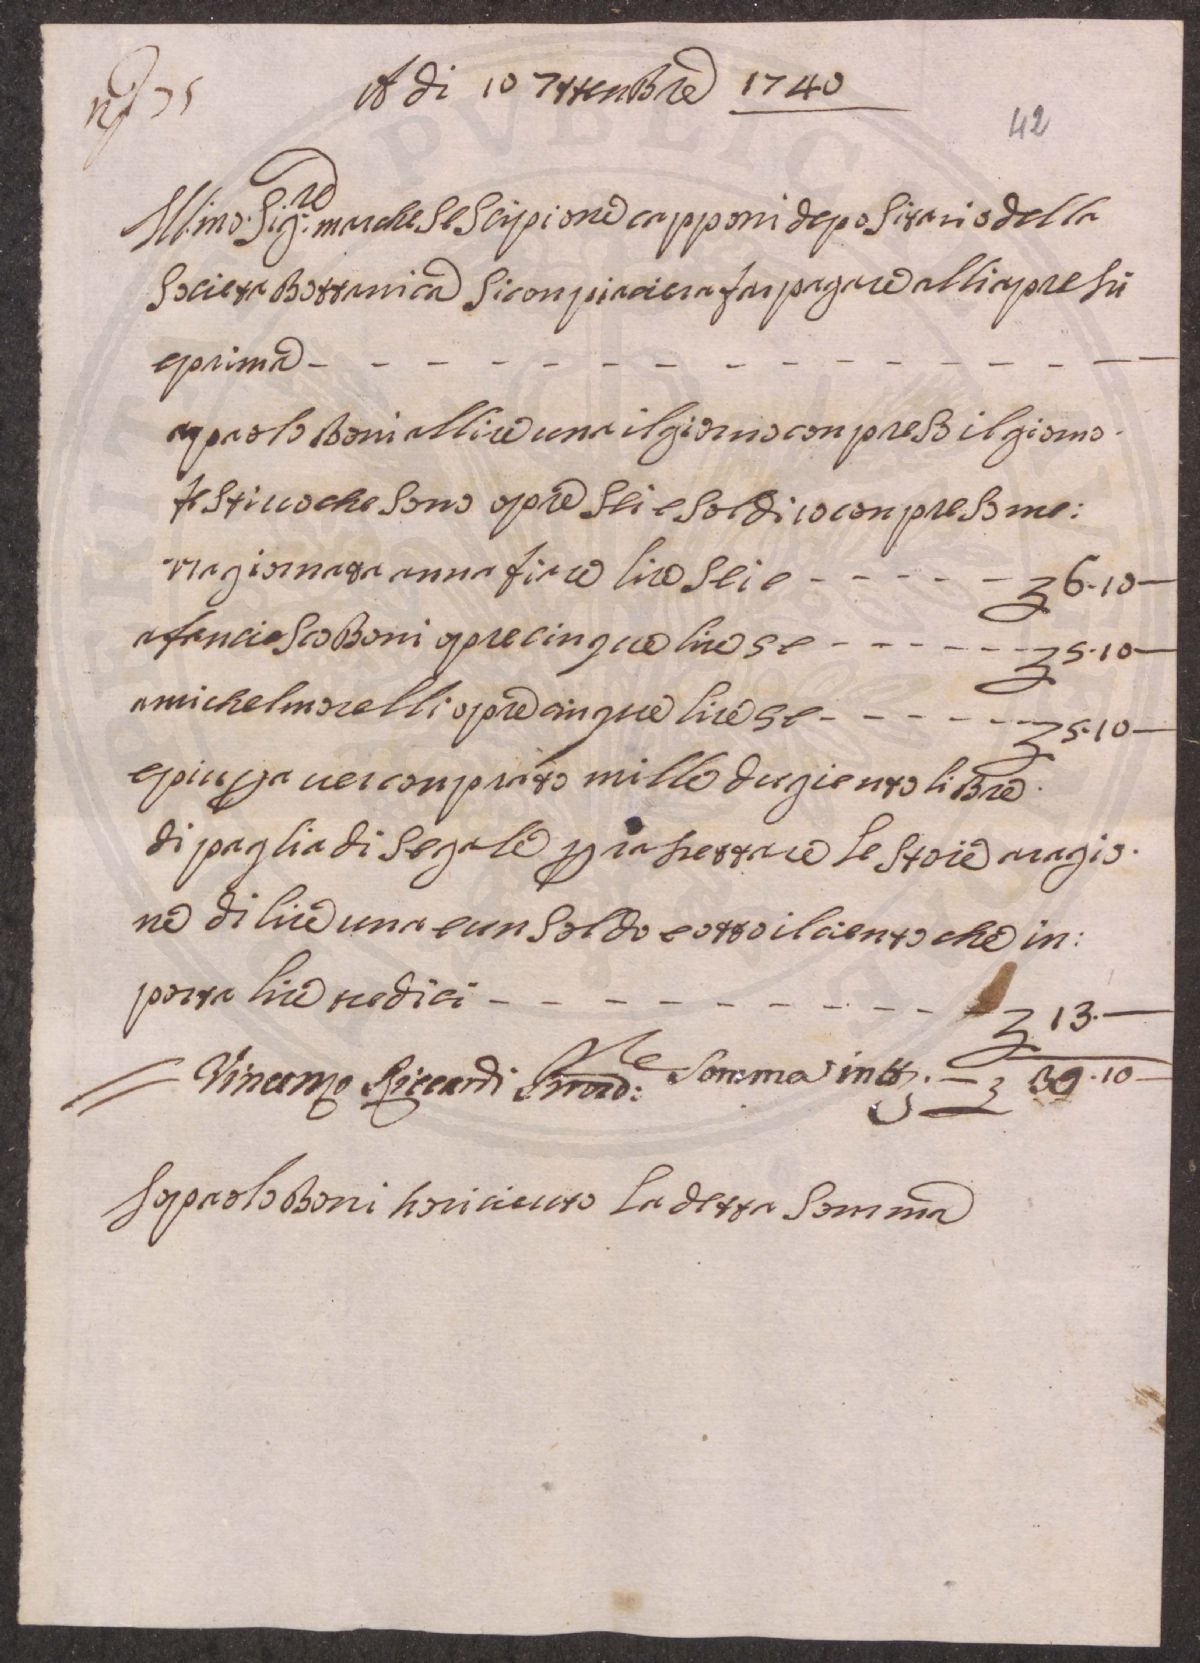 n° 75
A di 10 7ttenbre 1740
42
Ill.mo Sig:re marchese Scipione capponi depositario della
Societa Bottanica si conpiaciera far pagare alli apresu
e prima
a paolo Boni a llire una il giorno conpreso il giorno
festiuo che sono opre seie soldi 10 conpreso me:
za giornata annafiare lire seie 6.10
a franciesco Boni opre cinque lire 5 e 5.10
a michel morelli opre cinque lire 5 e 5.10
e piu per auer conprato mille dugiento libre
di paglia di segale per rasettare le stoie a ragio
ne di lire una e un soldo e otto il ciento che in:
porta lire tredici 13.
Vincenzo Riccardi Prov: Somma in tt. 30.10
Io paolo Boni ho riceuto la detta Somma